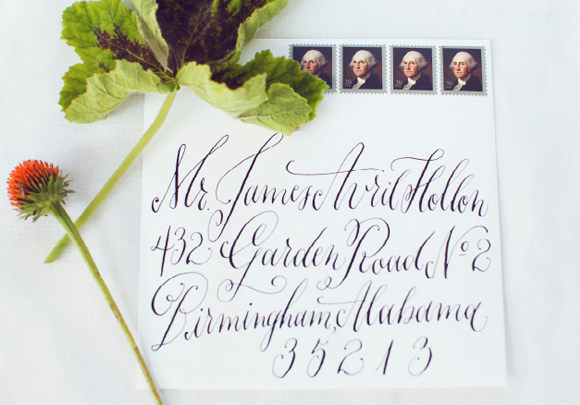 20 20 20
Mr. James Avril Hollon
432 Garden Road Nº 2
Birmingham, Alabama
35213